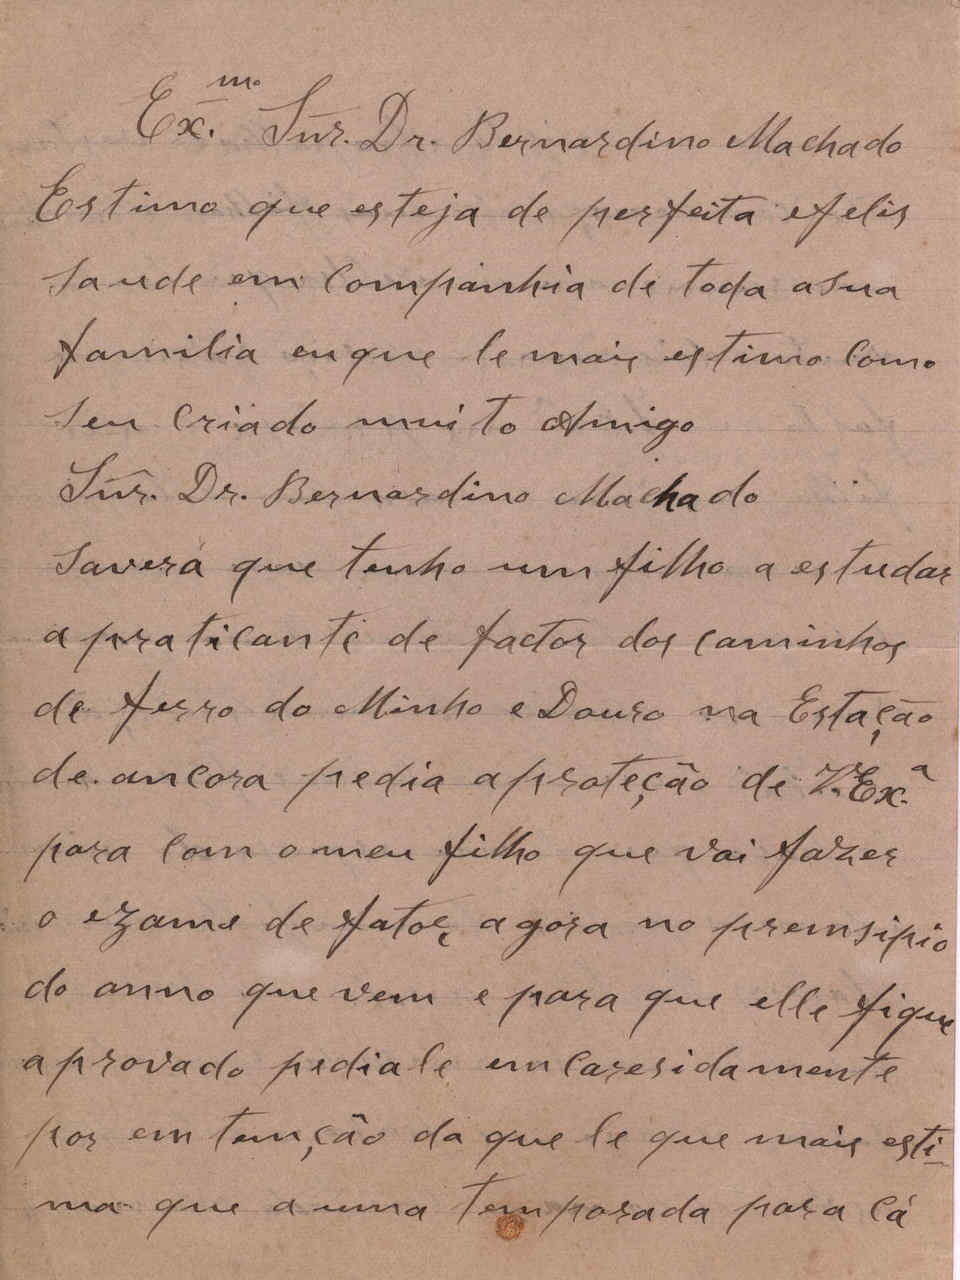 Ex.mo Snr. Dr. Bernardino Machado
Estimo que esteja de perfeita efelis
saude em companhia de toda asua
familia eu que le mais estimo como
seu criado muito Amigo
Snr. Dr. Bernardino Machado
saverá que tenho um filho a estudar
a praticante de factor dos caminhos
de ferro do Minho e Douro na Estação
de ancora pedia aproteção de V. Ex.a
para com omeu filho que vai fazer
o ezame de fator agora no premsipio
do anno que vem e para que elle fique
aprovado pediale emcaresidamente
por em tenção da que le que mais esti-
ma que a uma temporada para cá